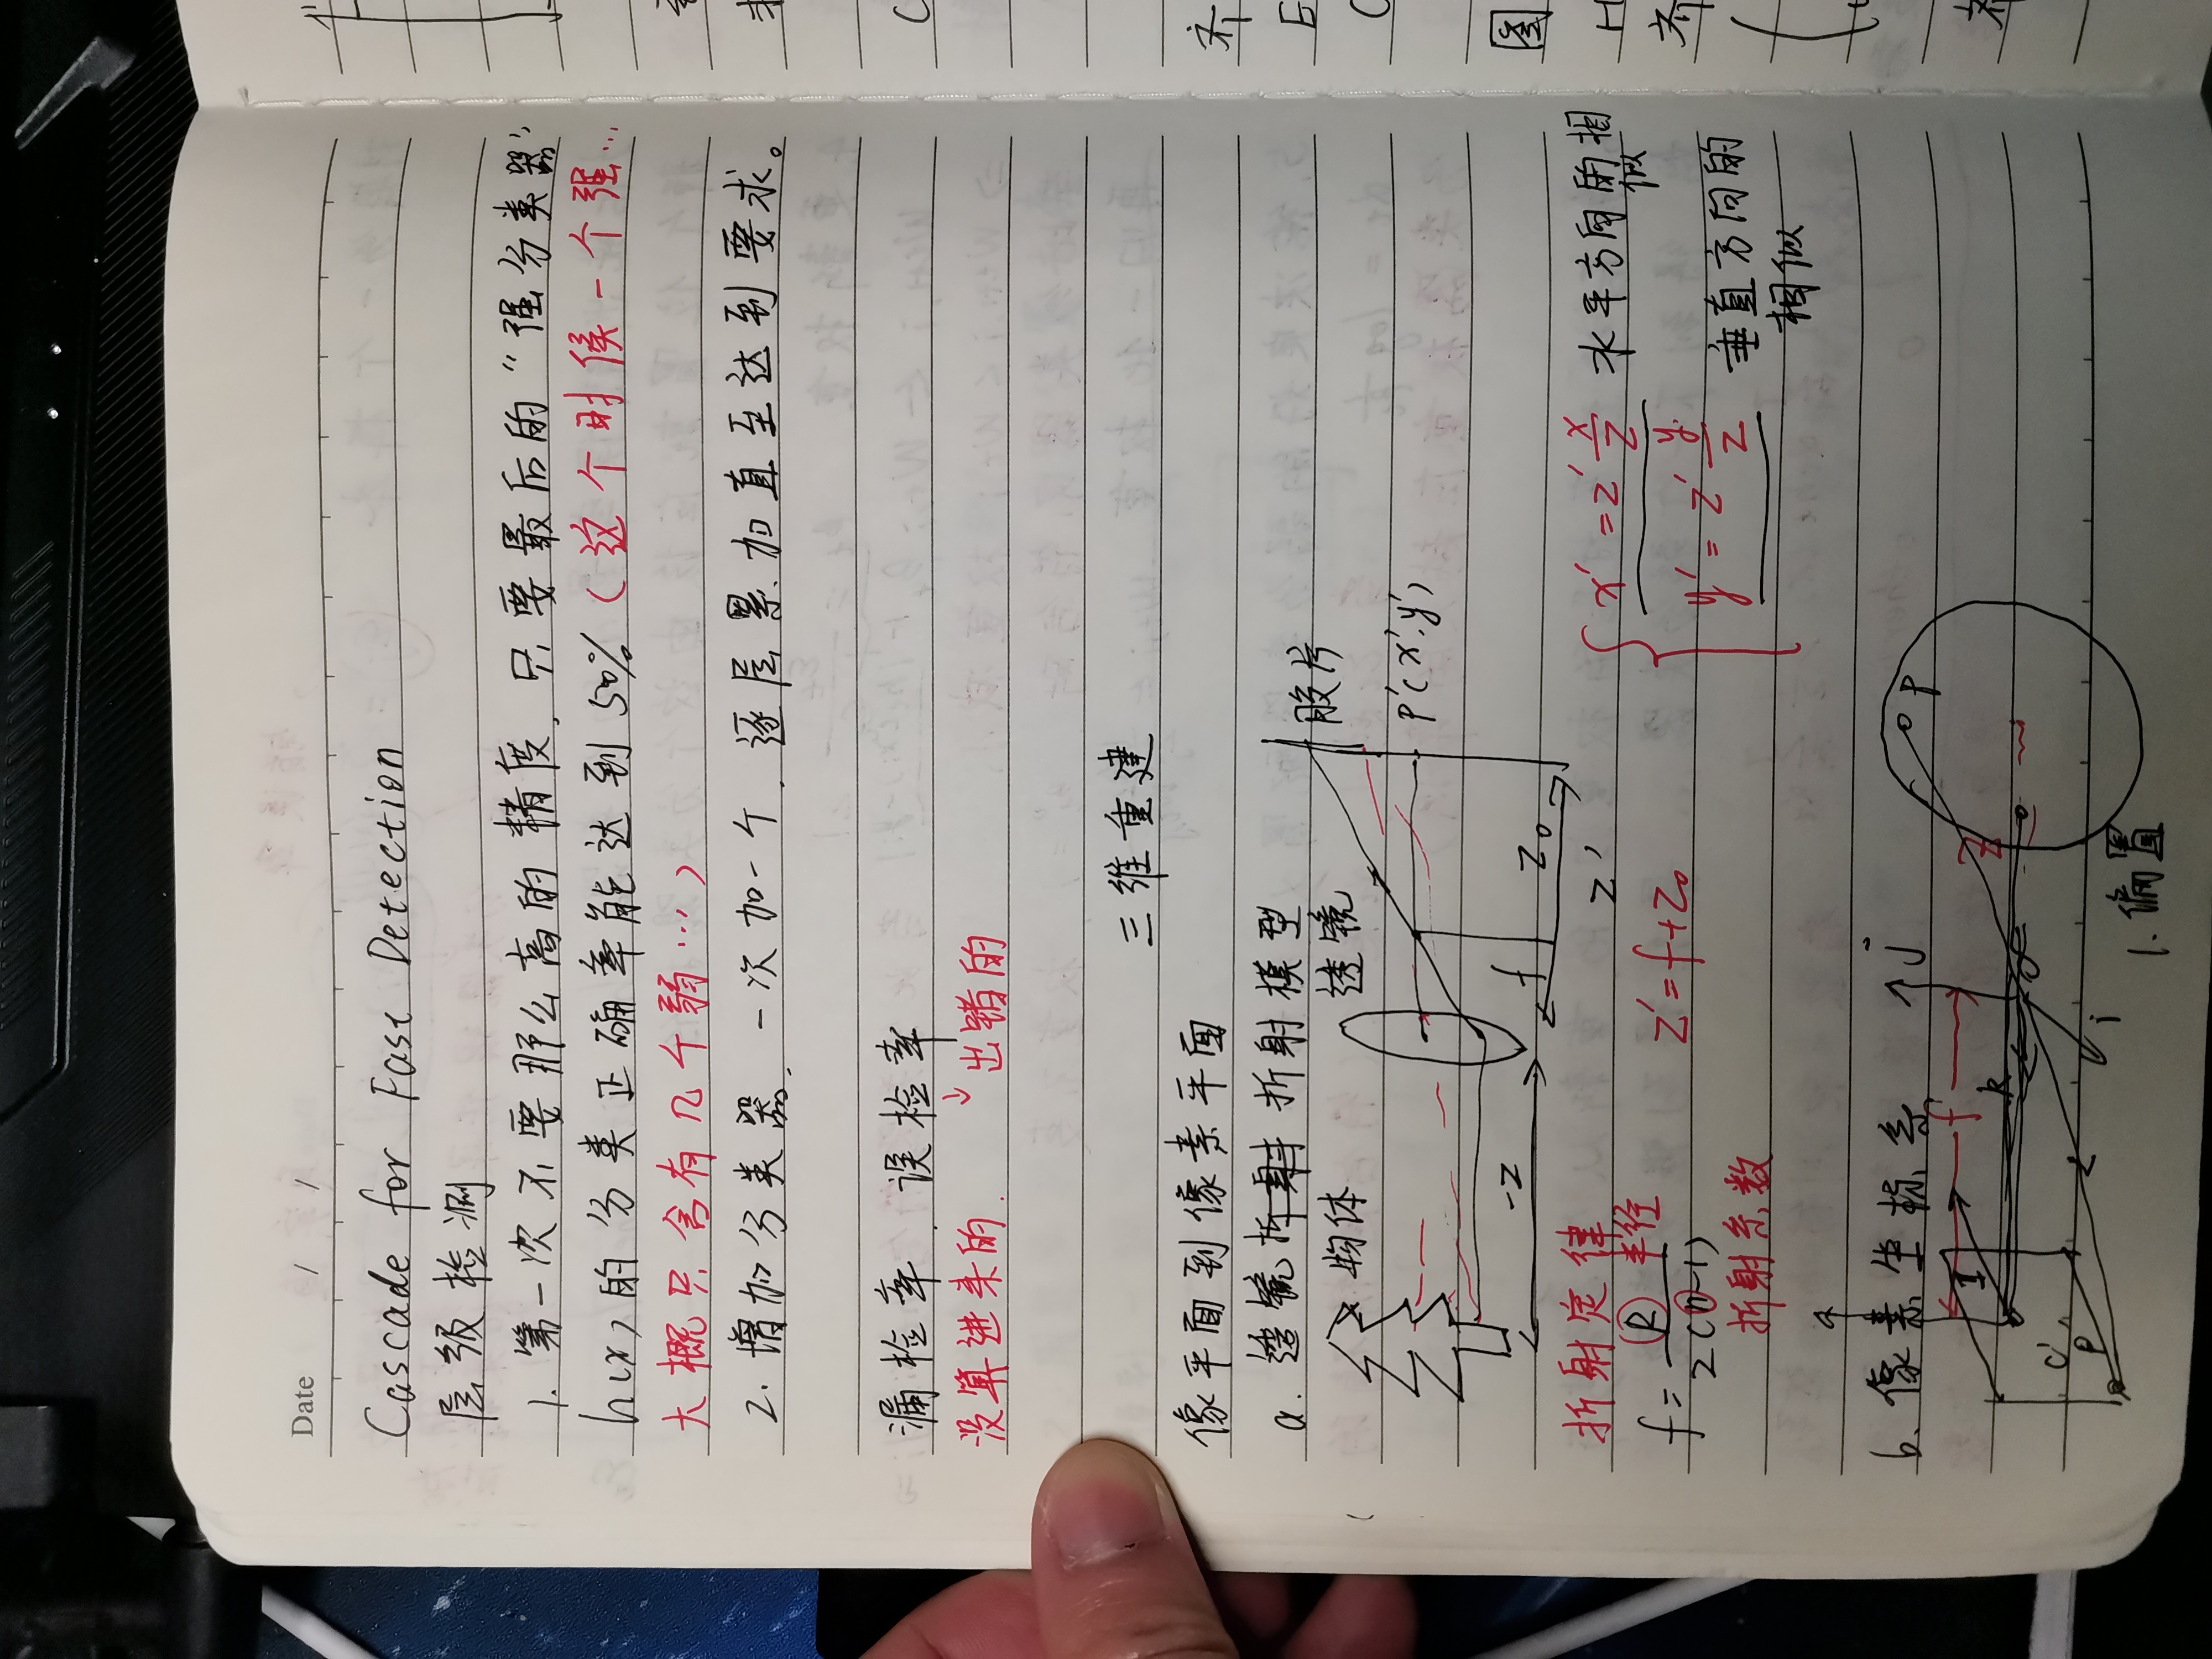 Date / /
Cascade for Fast Detection
层级检测
1. 第一次不要那么高的精度,只要最后的“强分类器”
h(x)的分类正确率能达到50%(这个时候一个强…
大概只含有几个弱…)
2. 增加分类器,一次加一个,逐层累加直至达到要求。
漏检率,误检率
没算进来的. ↓出错的
三维重建
像平面到像素平面
a. 透镜折射模型
物体 透镜 胶片
P'(x',y')
-z f z₀
z'
折射定律 z'=f+z₀ { x'=z' x/z 水平方向的相似
f = R 半径 / 2(n-1) y'=z' y/z 垂直方向的
折射系数 相似
b. 像素坐标系
j
f
P
k
i
C'
1. 偏置
图